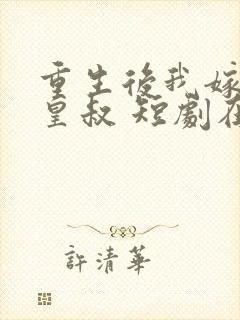 重生後我嫁
皇叔 短劇在
許清華